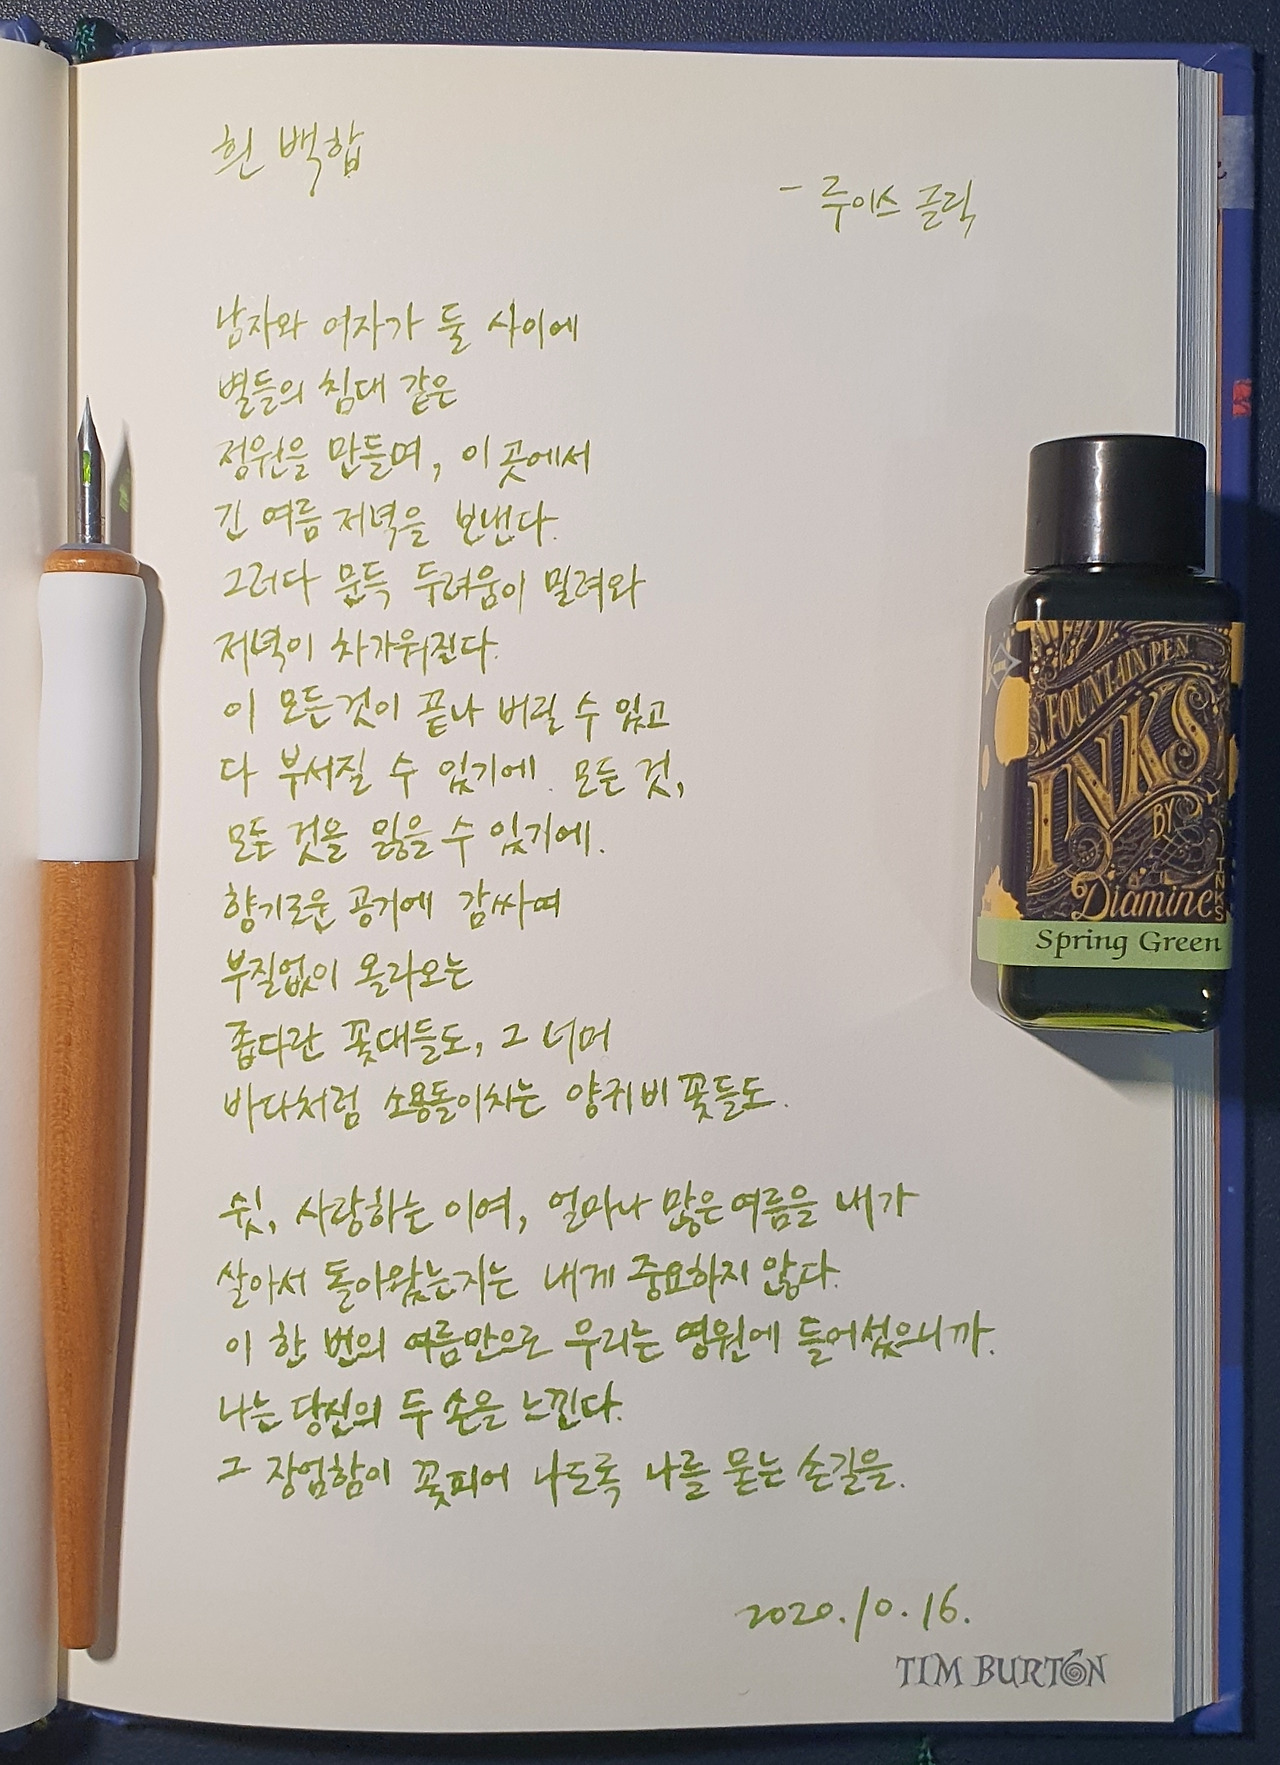 흰 백합
- 루이스 글릭
남자와 여자가 둘 사이에
별들의 침대 같은
정원을 만들며, 이 곳에서
긴 여름 저녁을 보낸다.
그러다 문득 두려움이 밀려와
저녁이 차가워진다.
이 모든것이 끝나 버릴 수 있고
다 부서질 수 있기에. 모든 것,
모든 것을 잃을 수 있기에.
향기로운 공기에 감싸여
부질없이 올라오는
좁다란 꽃대들도, 그 너머
바다처럼 소용돌이치는 양귀비 꽃들도.
쉿, 사랑하는 이여, 얼마나 많은 여름을 내가
살아서 돌아왔는지는 내게 중요하지 않다.
이 한 번의 여름만으로 우리는 영원에 들어섰으니까.
나는 당신의 두 손을 느낀다.
그 장엄함이 꽃피어 나도록 나를 묻는 손길을.
2020.10.16.
TIM BURTON
FOUNTAIN PEN
INKS
BY
Diamine
INKS
Spring Green